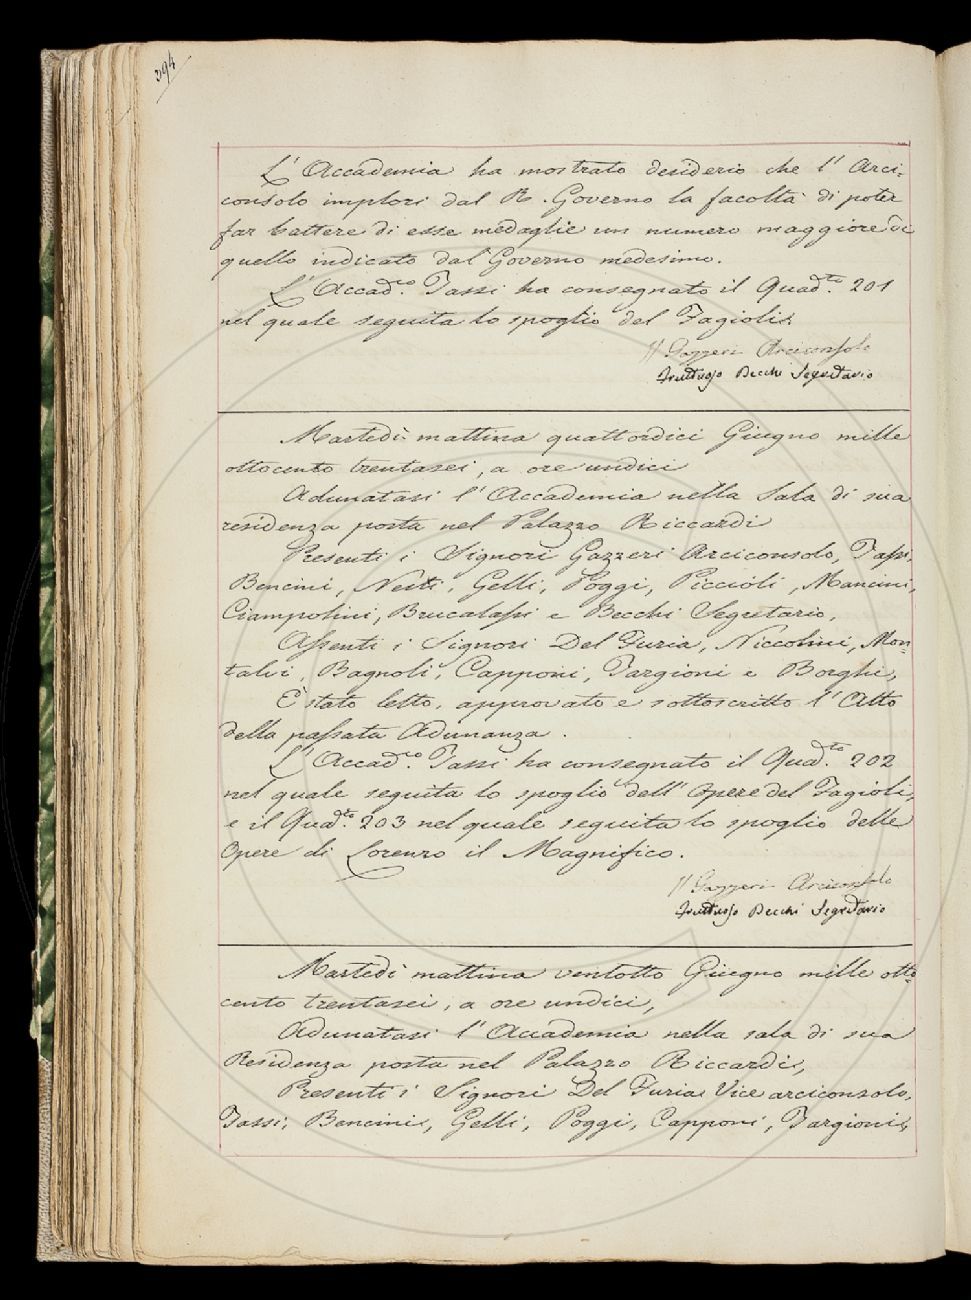 294
L'Accademia ha mostrato desiderio che l'Arci-
consolo implori dal R. Governo la facoltà di poter
far battere di esse medaglie un numero maggiore di
quello indicato dal Governo medesimo.
L'Accad.co Tassi ha consegnato il Quad.to 201
nel quale seguita lo spoglio del Fagioli.
Gazzeri Arciconsolo
Fruttuoso Becchi Segretario
Martedì mattina quattordici Giugno mille
ottocento trentasei, a ore undici
Adunatasi l'Accademia nella Sala di sua
residenza posta nel Palazzo Riccardi
Presenti i Signori Gazzeri Arciconsolo, Tassi,
Bencini, Nesti, Gelli, Poggi, Piccioli, Mancini,
Ciampolini, Brucalassi e Becchi Segretario,
Assenti i Signori Del Furia, Niccolini, Mon-
talvi, Bagnoli, Capponi, Targioni e Borghi,
È stato letto, approvato e sottoscritto l'Atto
della passata Adunanza.
L'Accad.co Tassi ha consegnato il Quad.to 202
nel quale seguita lo spoglio dell'Opere del Fagioli,
e il Quad.to 203 nel quale seguita lo spoglio delle
Opere di Lorenzo il Magnifico.
Gazzeri Arciconsolo
Fruttuoso Becchi Segretario
Martedì mattina ventotto Giugno mille otto-
cento trentasei, a ore undici,
Adunatasi l'Accademia nella sala di sua
Residenza posta nel Palazzo Riccardi,
Presenti i Signori Del Furia Vice arciconsolo,
Tassi, Bencini, Gelli, Poggi, Capponi, Targioni,